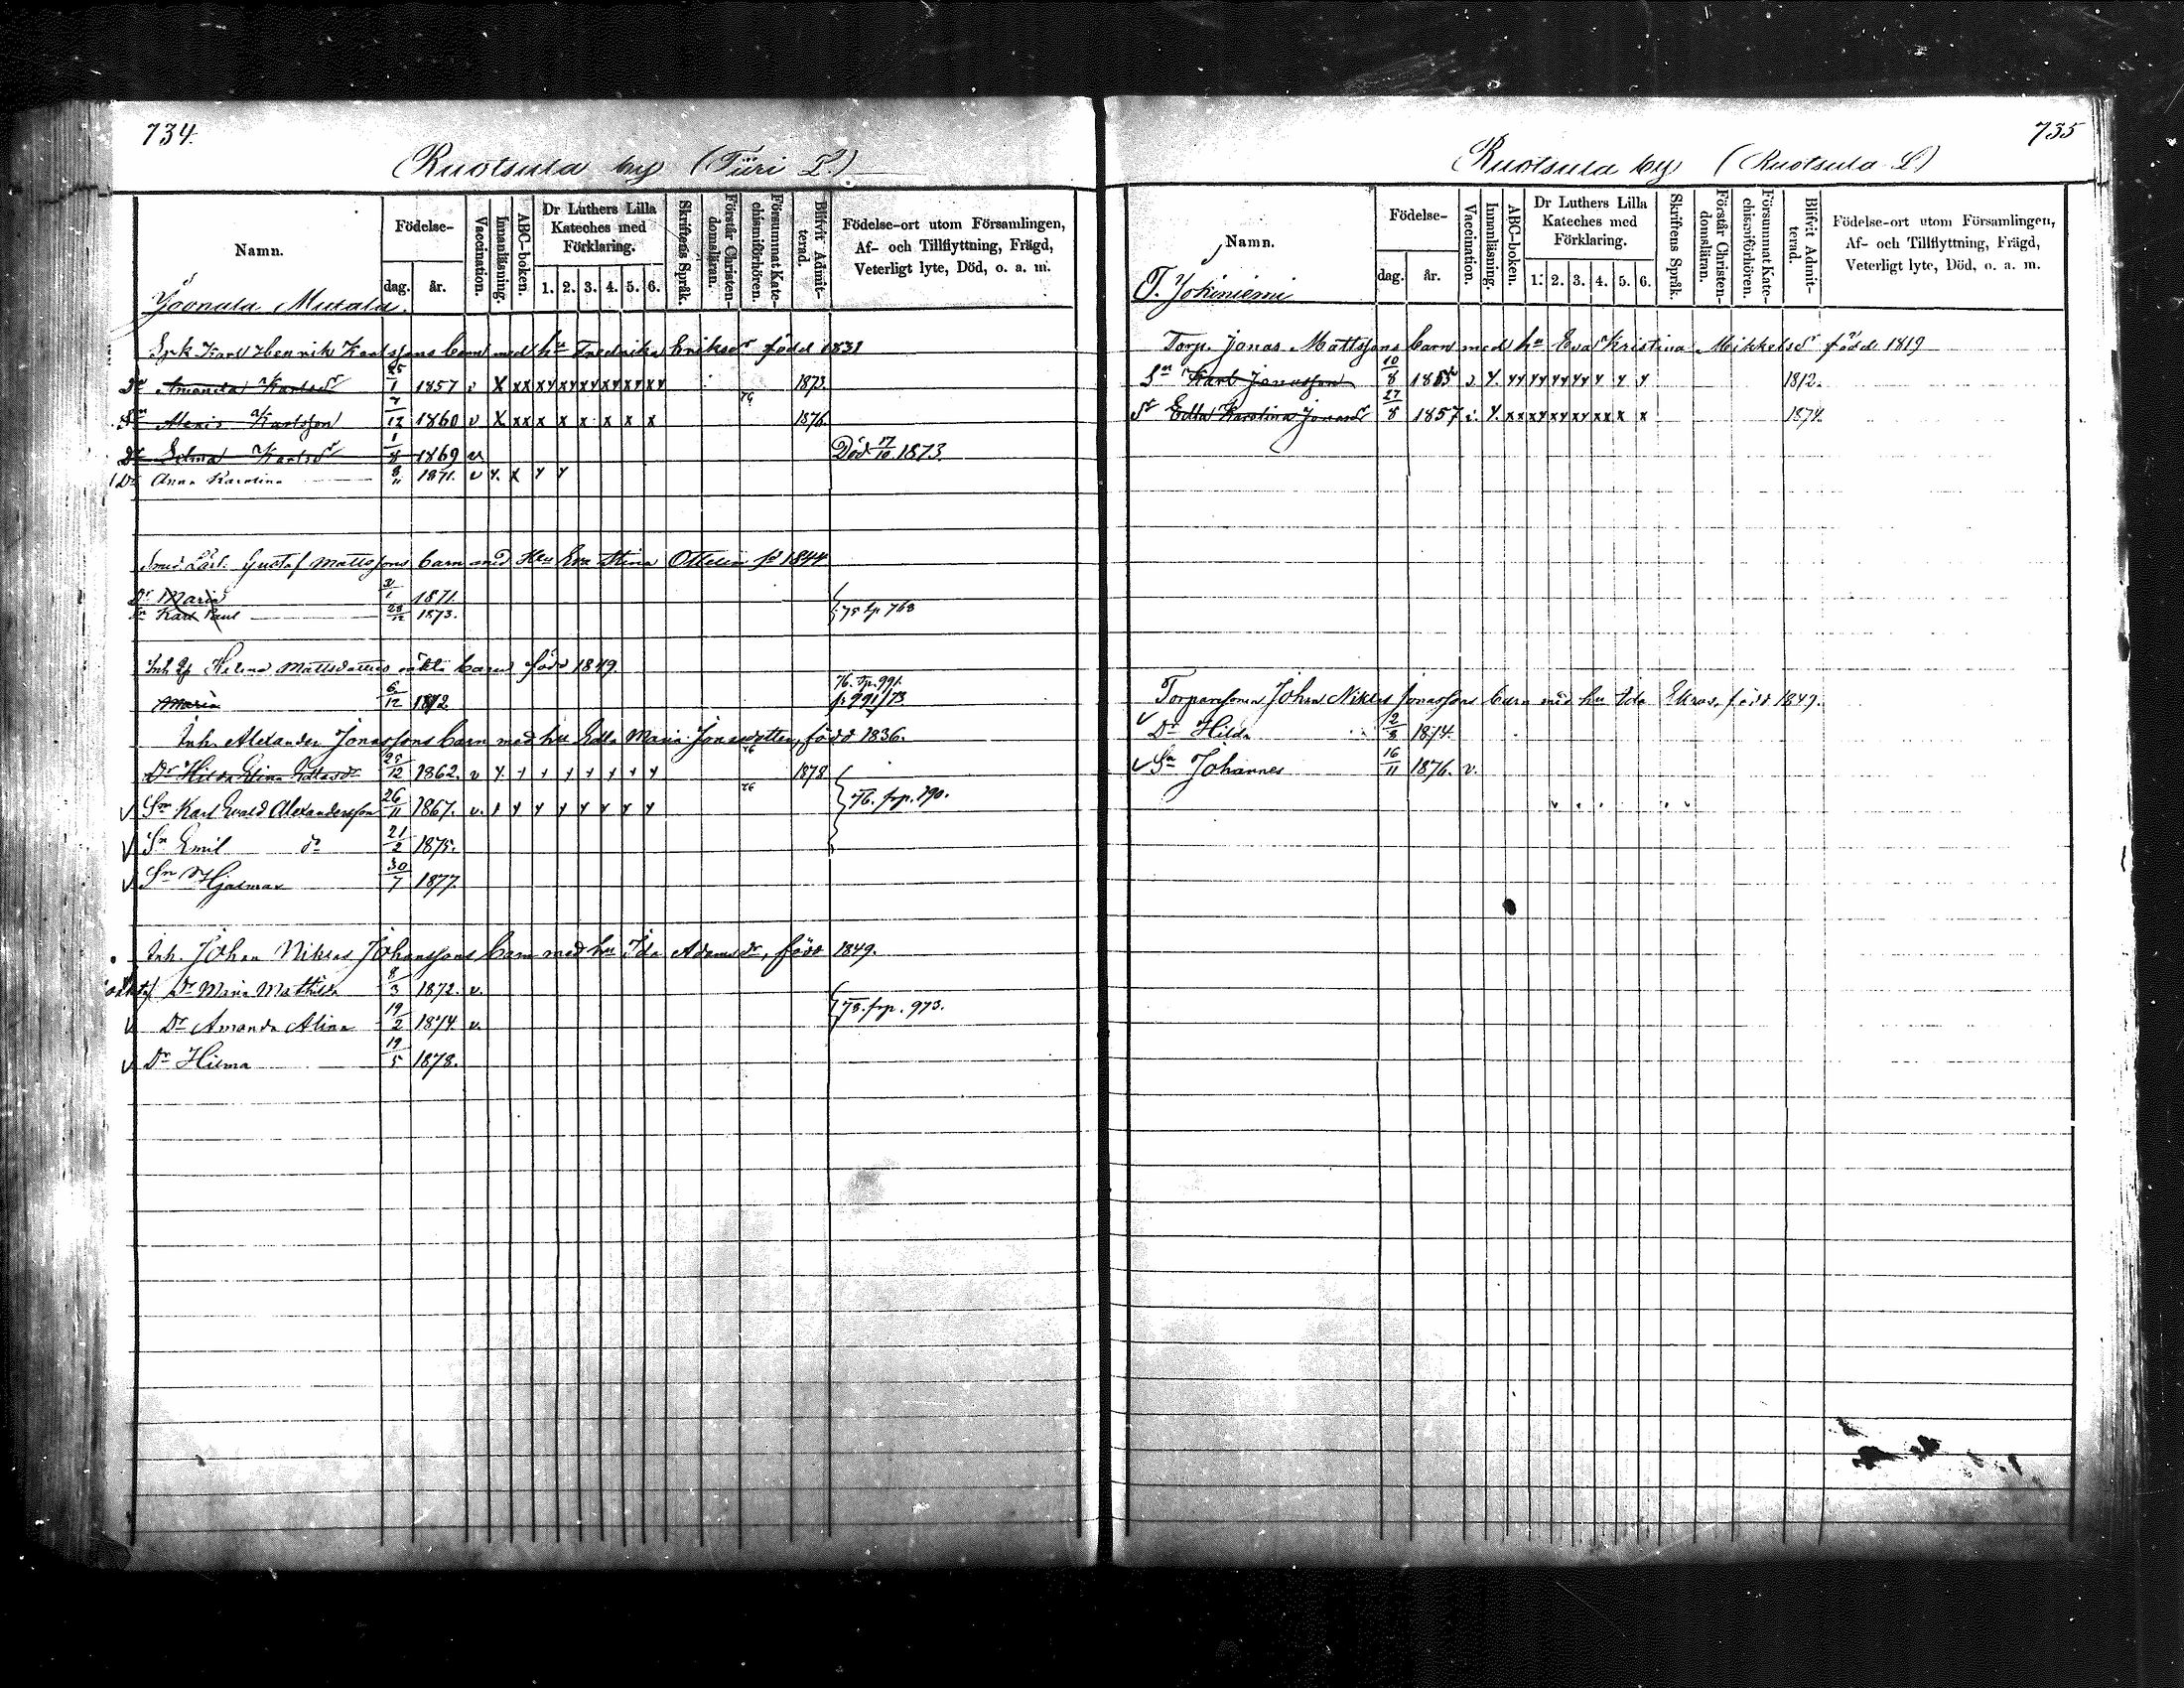 734.
Ruotsula by (Tiiri L.)
Namn.
Födelse-
dag.
år.
Vaccination.
Innanläsning.
ABC-boken.
Dr Luthers Lilla Kateches med Förklaring.
1. 2. 3. 4. 5. 6.
Skriftens Språk.
Förstår Christendomsläran.
Försummat Katechismiförhören.
Blifvit Admitterad.
Födelse-ort utom Församlingen,
Af- och Tillflyttning, Frägd,
Veterligt lyte, Död, o. a. m.
Karl Henrik Karlssons barn med hu Fredrika Eriksdr född 1831
Dr Amanda Karlsdr 25/1 1857 v X xx xy xy xy xy xy xy 1873.
Sn Alexis Karlsson 7/12 1860 v X xx x x x x x x 76 1876.
Dr Selma Karlsdr 1/8 1869 v Död 17/10 1873.
Dr Anna Karolina 8/11 1871. v x x y y
Gustaf Mattssons barn med Hu Eva Stina Ottelin fd 1844
Dr Maria 1871.
Sn Karl Paul 28/12 1873. 75 fp 763
Inh. Helena Mattsdotters oäkta barn född 1849
Maria 6/12 1872 76. fp. 991. p 991/73
Inh. Alexander Jonassons barn med hu Edla Maria Jonasdotter, född 1836.
Dr Hilda Elina 28/12 1862. v x y y y y y y y 76 1878
Sn Karl Evald Alexandersson 26/11 1867. v. x y y y y y y y 76 76. frp. 190.
Sn Emil do 21/2 1875.
Sn Hjalmar 30/7 1877.
Inh. Johan Niklas Johanssons barn med hu Ida Adamsdr, född 1849.
Dr Maria Mathilda 8/3 1872. v.
Dr Amanda Alina 19/2 1874 v. 73. frp. 973.
Dr Hilma 19/5 1878.
735
Ruotsula by (Ruotsula L)
Namn.
Födelse-
dag.
år.
Vaccination.
Innanläsning.
ABC-boken.
Dr Luthers Lilla Kateches med Förklaring.
1. 2. 3. 4. 5. 6.
Skriftens Språk.
Förstår Christendomsläran.
Försummat Katechismiförhören.
Blifvit Admitterad.
Födelse-ort utom Församlingen,
Af- och Tillflyttning, Frägd,
Veterligt lyte, Död, o. a. m.
T. Jokiniemi
Torp. Jonas Mattssons barn med hu Eva Kristina Mikkelsdr född 1819
Sn Karl Jonasson 10/8 v y. yy yy yy yy y y y 1872.
Dr Edla Karolina Jonasdr 27/8 1857 v. y. xx xy xy xy xx x x 1874.
Torparesonen Johan Niklas Jonassons barn med hu Ida född 1849.
Dr Hilda 2/8 1874.
Sn Johannes 16/11 1876. v.